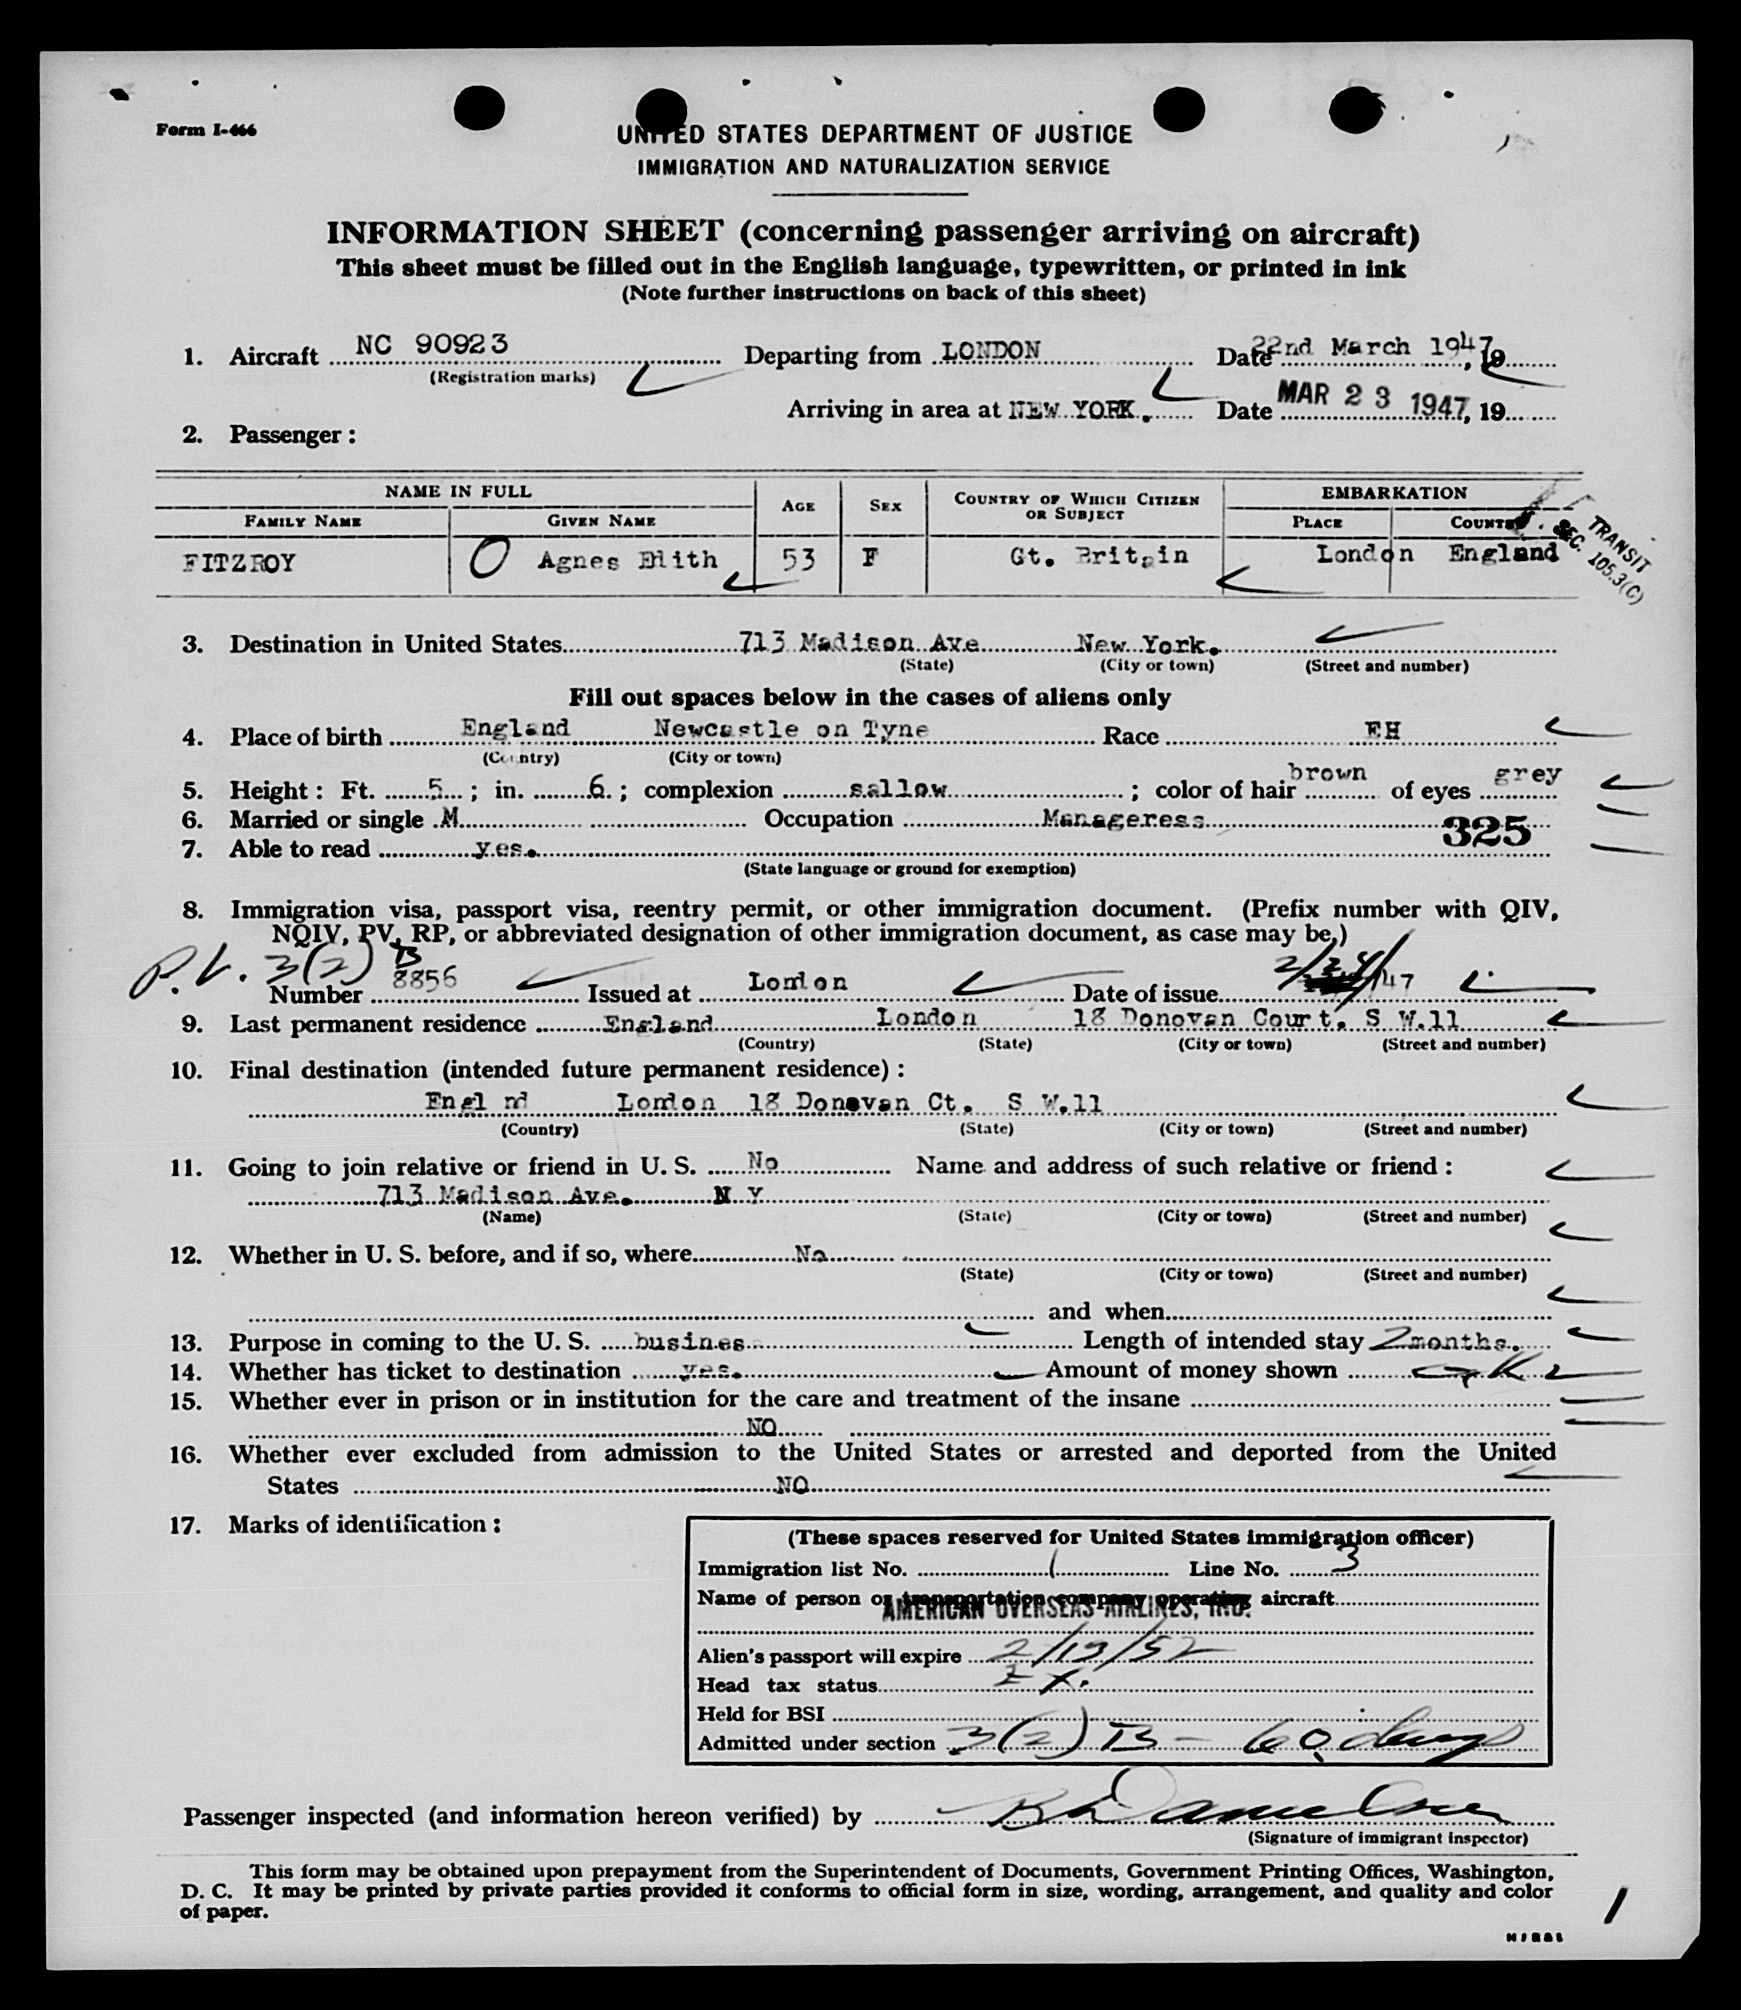 Form I-466
UNITED STATES DEPARTMENT OF JUSTICE
IMMIGRATION AND NATURALIZATION SERVICE
INFORMATION SHEET (concerning passenger arriving on aircraft)
This sheet must be filled out in the English language, typewritten, or printed in ink
(Note further instructions on back of this sheet)
1. Aircraft NC 90923 Departing from LONDON Date 22nd March 1947, 19
(Registration marks)
Arriving in area at NEW YORK. Date MAR 23 1947, 19
2. Passenger:
NAME IN FULL AGE SEX COUNTRY OF WHICH CITIZEN OR SUBJECT EMBARKATION
FAMILY NAME GIVEN NAME PLACE COUNTRY
TRANSIT
SEC. 105.3(C)
FITZROY O Agnes Edith 53 F Gt. Britain London England
3. Destination in United States 713 Madison Ave New York.
(State) (City or town) (Street and number)
Fill out spaces below in the cases of aliens only
4. Place of birth England Newcastle on Tyne Race EH
(Country) (City or town)
5. Height: Ft. 5; in. 6.; complexion sallow; color of hair brown of eyes grey
6. Married or single M Occupation Manageress
325
7. Able to read yes.
(State language or ground for exemption)
8. Immigration visa, passport visa, reentry permit, or other immigration document. (Prefix number with QIV,
NQIV, PV, RP, or abbreviated designation of other immigration document, as case may be.)
P.V. 3(2) B
Number 8856 Issued at London Date of issue 2/24/47
9. Last permanent residence England London 18 Donovan Court. S W.11
(Country) (State) (City or town) (Street and number)
10. Final destination (intended future permanent residence):
Engl nd London 18 Donovan Ct. S W.11
(Country) (State) (City or town) (Street and number)
11. Going to join relative or friend in U. S. No Name and address of such relative or friend:
713 Madison Ave. N Y
(Name) (State) (City or town) (Street and number)
12. Whether in U. S. before, and if so, where No
(State) (City or town) (Street and number)
and when
13. Purpose in coming to the U. S. business Length of intended stay 2 months.
14. Whether has ticket to destination yes. Amount of money shown OK
15. Whether ever in prison or in institution for the care and treatment of the insane
NO
16. Whether ever excluded from admission to the United States or arrested and deported from the United
States NO
17. Marks of identification:
(These spaces reserved for United States immigration officer)
Immigration list No. 1 Line No. 3
Name of person or transportation company operating aircraft
AMERICAN OVERSEAS AIRLINES, INC.
Alien's passport will expire 2/13/52
Head tax status EX.
Held for BSI
Admitted under section 3(2) B - 60 days
Passenger inspected (and information hereon verified) by
(Signature of immigrant inspector)
This form may be obtained upon prepayment from the Superintendent of Documents, Government Printing Offices, Washington,
D. C. It may be printed by private parties provided it conforms to official form in size, wording, arrangement, and quality and color
of paper.
1